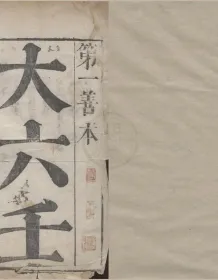 第一善本
大六壬